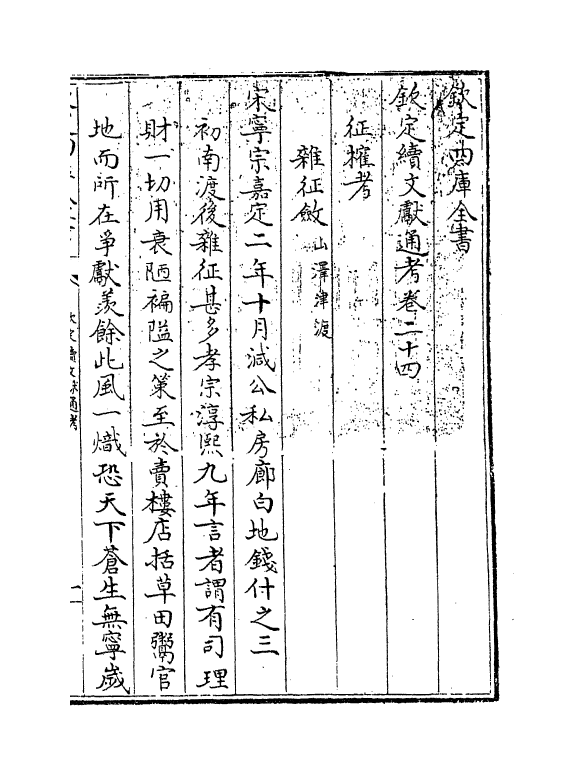 欽定四庫全書
欽定續文獻通考卷二十四
征榷考
雜征斂山澤津渡
宋寧宗嘉定二年十月減公私房廊白地錢付之三
初南渡後雜征甚多孝宗淳熙九年言者謂有司理
財一切用衰陋褊隘之策至於賣樓店括草田鬻官
地而所在爭獻羨餘此風一熾恐天下蒼生無寧歲
欽定續文獻通考
一